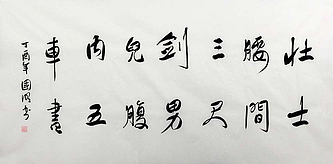 壮士
腰間
三尺
劍男
兒腹
内五
車書
丁酉年國